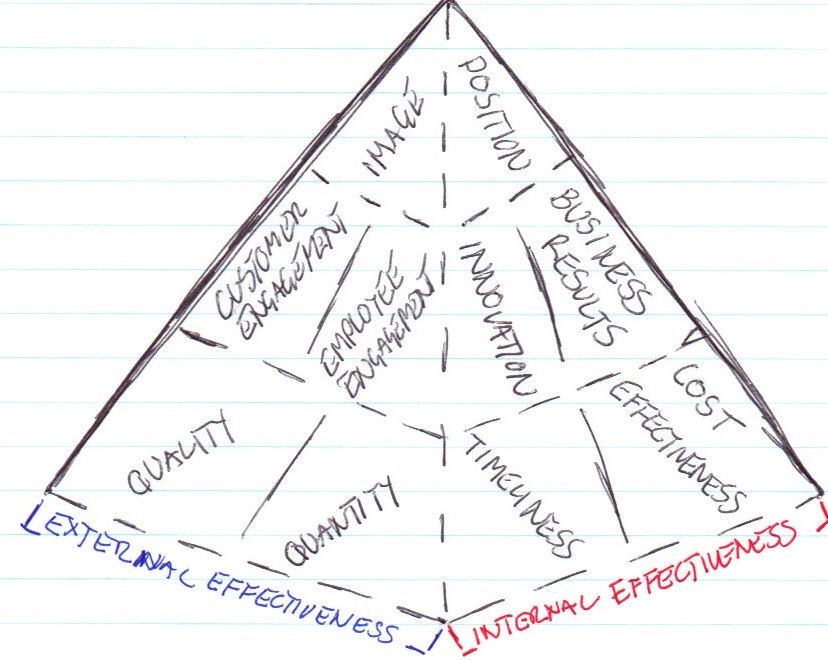 IMAGE
POSITION
CUSTOMER
ENGAGEMENT
EMPLOYEE
ENGAGEMENT
INNOVATION
BUSINESS
RESULTS
QUALITY
QUANTITY
TIMELINESS
COST
EFFECTIVENESS
EXTERNAL EFFECTIVENESS
INTERNAL EFFECTIVENESS